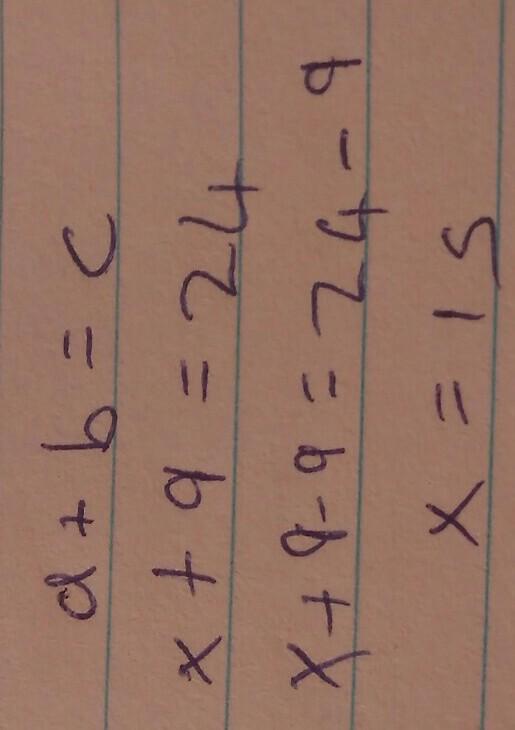 a + b = c
x + 9 = 24
x + 9 - 9 = 24 - 9
x = 15